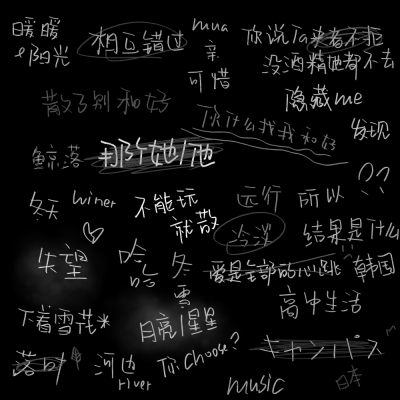 暖暖
mua
你说Ta来者不拒
&阳光
相互错过
亲
没酒精他都不去
可惜
隐藏me
散了别和好
你什么找我和好
发现
鲸落
那个她/他
??
冬天
winer
不能玩
就散
远行
所以
冷淡
结果是什么
失望
哈哈
冬雪
爱是全部的心跳
韩国
高中生活
下着雪花*
月亮/星星
落叶
河边
river
你choose?
キャンパス
music
日本